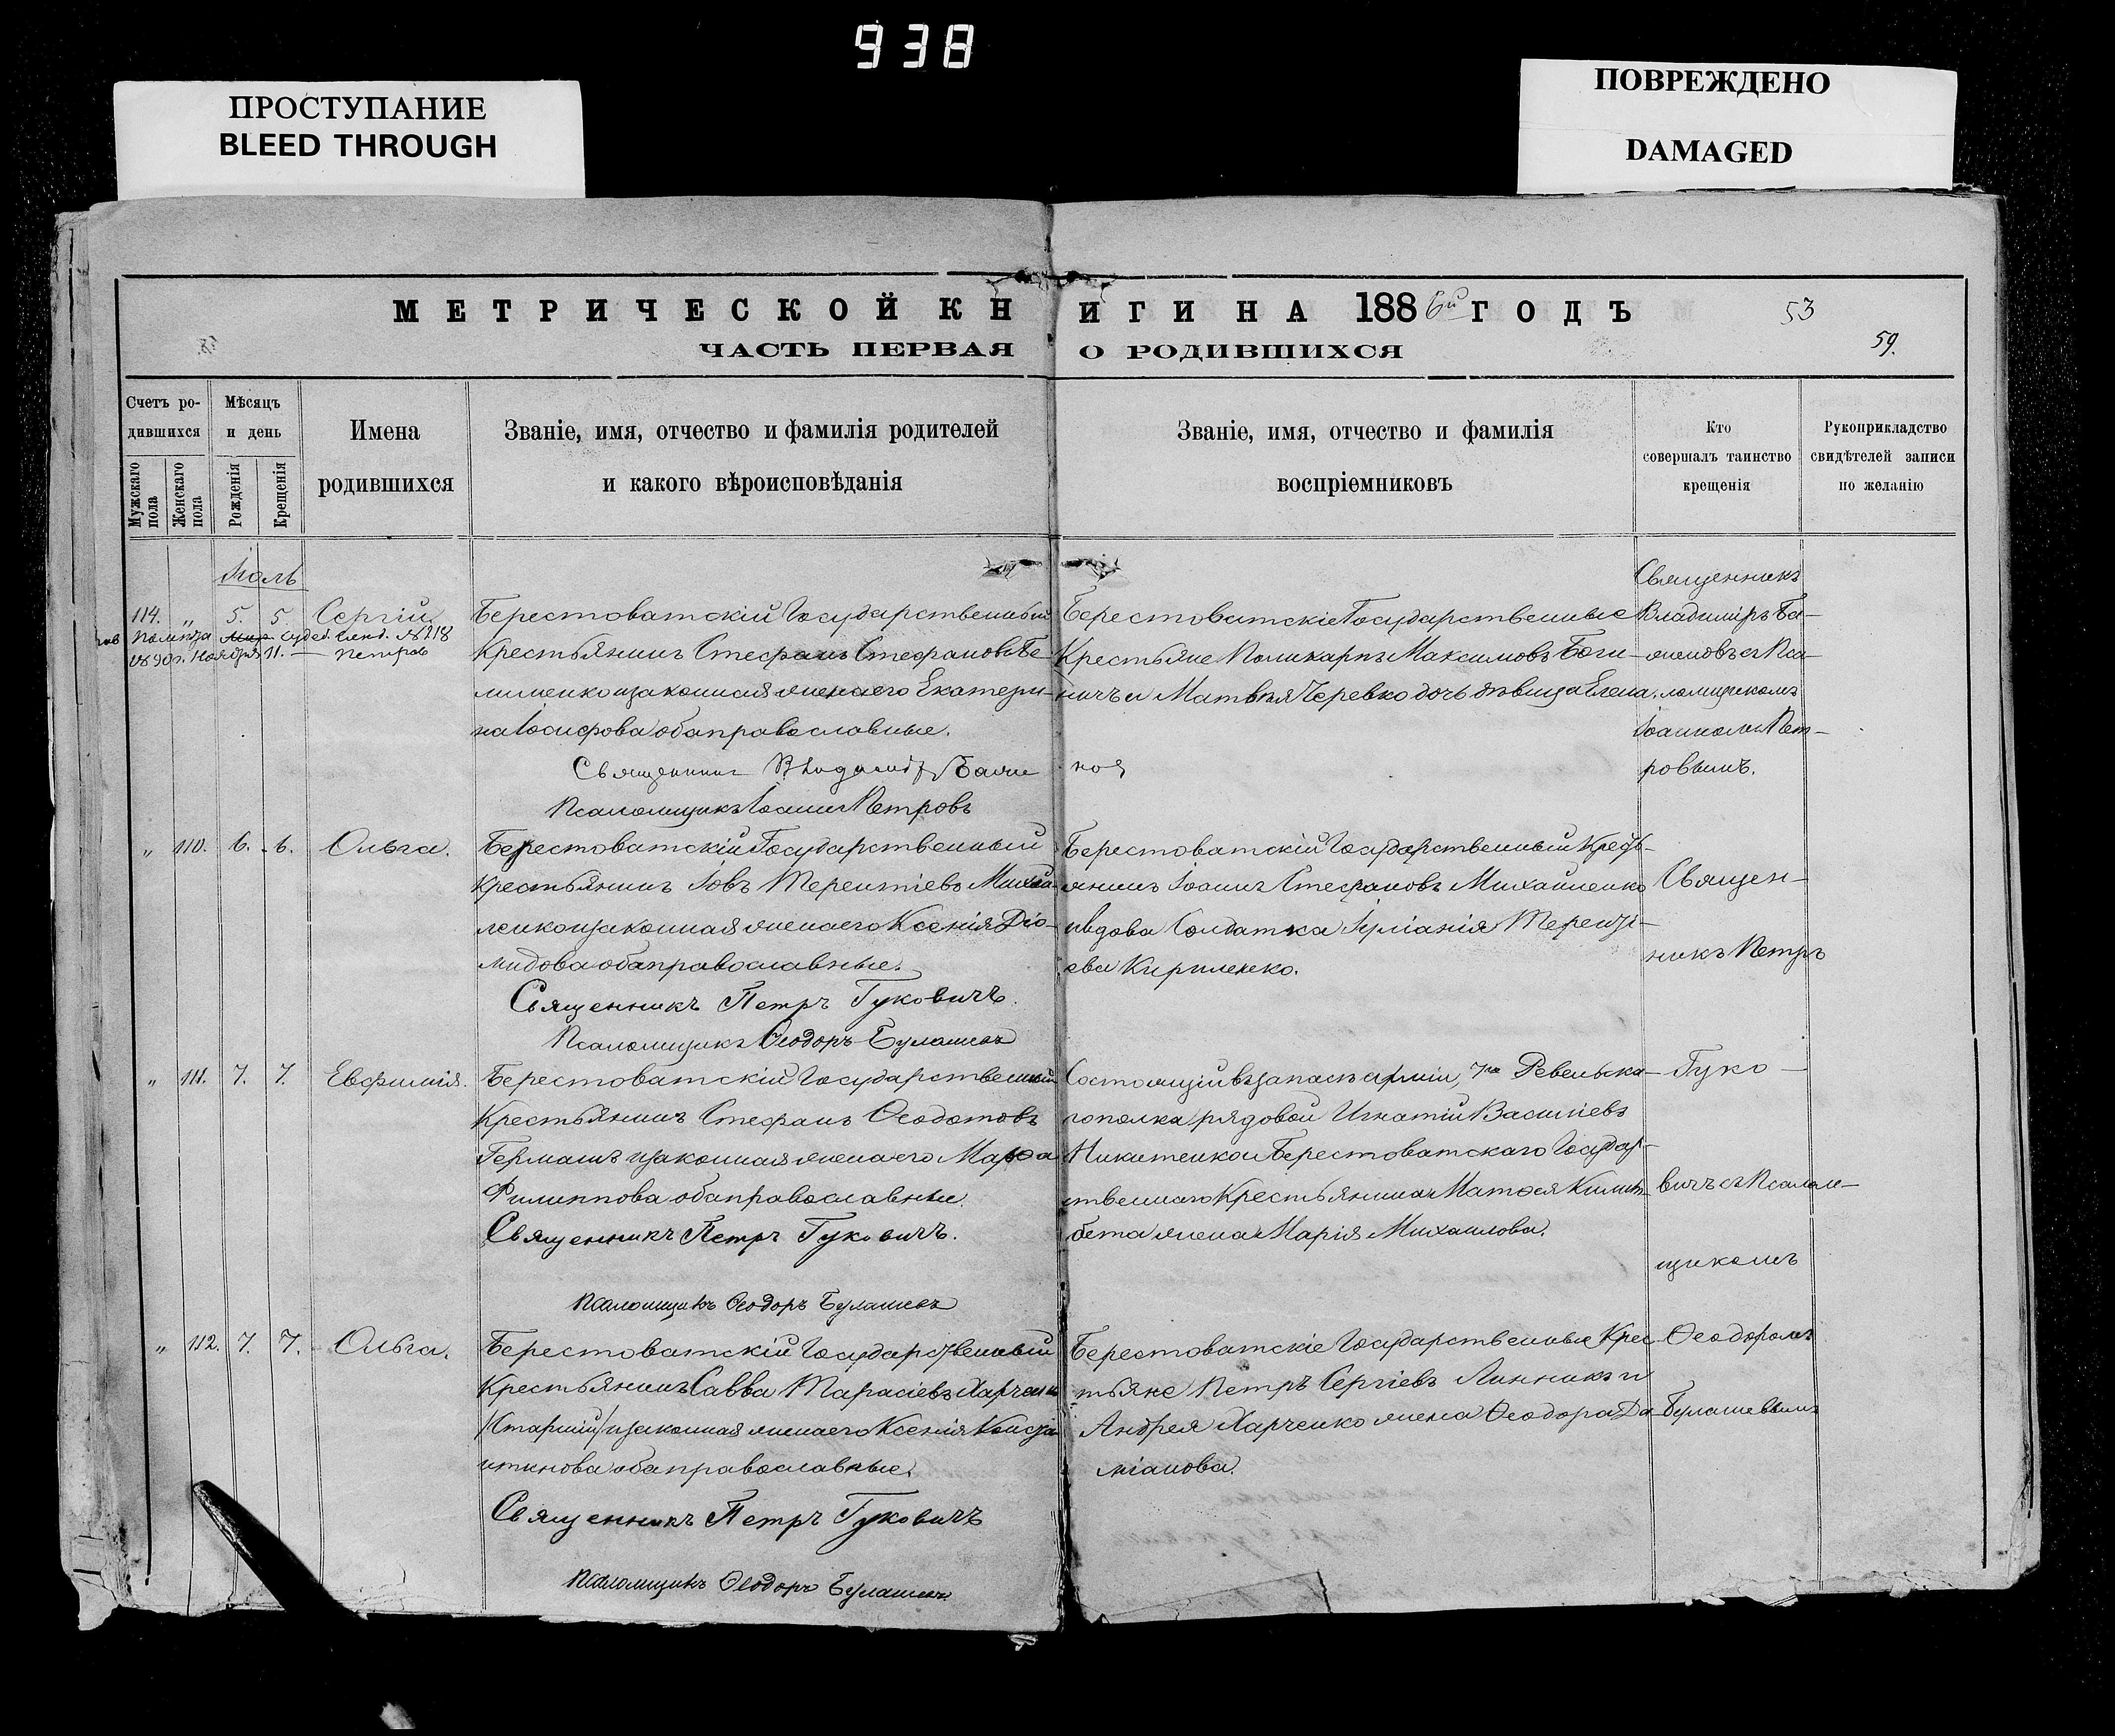 938
ПРОСТУПАНИЕ
BLEED THROUGH
ПОВРЕЖДЕНО
DAMAGED
МЕТРИЧЕСКОЙ КНИГИ НА 1886й ГОДЪ
53
ЧАСТЬ ПЕРВАЯ О РОДИВШИХСЯ
59.
Счетъ ро-
дившихся
Мужскаго пола
Женскаго пола
Мѣсяцъ
и день
Рожденія
Крещенія
Имена
родившихся
Званіе, имя, отчество и фамилія родителей
и какого вѣроисповѣданія
Званіе, имя, отчество и фамилія
воспріемниковъ
Кто
совершалъ таинство
крещенія
Рукоприкладство
свидѣтелей записи
по желанію
Іюль
114. „ 5. 5. Сергій
№ 218
1890г. Ноября 11. — Петровъ
Берестоватскій Государственный
Крестьянинъ Стефанъ Стефановъ Бе-
лименко и законная жена его Екатери-
на Іосифова оба православные.
Священникъ Владиміръ Баженовъ
Псаломщикъ Іоаннъ Петровъ
Берестоватскіе Государственные
Крестьяне Поликарпъ Максимовъ Боги-
ничъ и Матвѣя Черевко дочь дѣвица Елена.
Священникъ
Владиміръ Ба-
женовъ съ Пса-
ломщикомъ
Іоанномъ Пет-
ровымъ.
„ 110. 6. 6. Ольга.
Берестоватскій Государственный
Крестьянинъ Іовъ Терентіевъ Михай-
ленко и законная жена его Ксенія Діо-
мидова оба православные.
Священникъ Петръ Гуковичъ.
Псаломщикъ Ѳеодоръ Булашевъ
Берестоватскій Государственный Кресть-
янинъ Іоаннъ Стефановъ Михайленко
и вдова Солдатка Іуліанія Теренті-
ева Кириленко.
Священ-
никъ Петръ
„ 111. 7. 7. Евфимія.
Берестоватскій Государственный
Крестьянинъ Стефанъ Ѳеодотовъ
Германъ и законная жена его Марѳа
Филиппова оба православные.
Священникъ Петръ Гуковичъ.
Псаломщикъ Ѳеодоръ Булашевъ
Состоящій въ запасѣ арміи, 7го Ревельска-
го полка рядовой Игнатій Василіевъ
Никитенко и Берестоватскаго Государ-
ственнаго Крестьянина Матѳея
бета жена Марія Михаилова.
Гуко-
вичъ съ Псалом-
щикомъ
„ 112. 7. 7. Ольга.
Берестоватскій Государственный
Крестьянинъ Савва Тарасіевъ Харченко
/Старшій/ и законная жена его Ксенія Конста-
нтинова оба православные.
Священникъ Петръ Гуковичъ
Псаломщикъ Ѳеодоръ Булашевъ
Берестоватскіе Государственные Крес-
тьяне Петръ Сергіевъ Линникъ и
Андрея Харченко жена Ѳеодора Да-
міанова.
Ѳеодоромъ
Булашевымъ